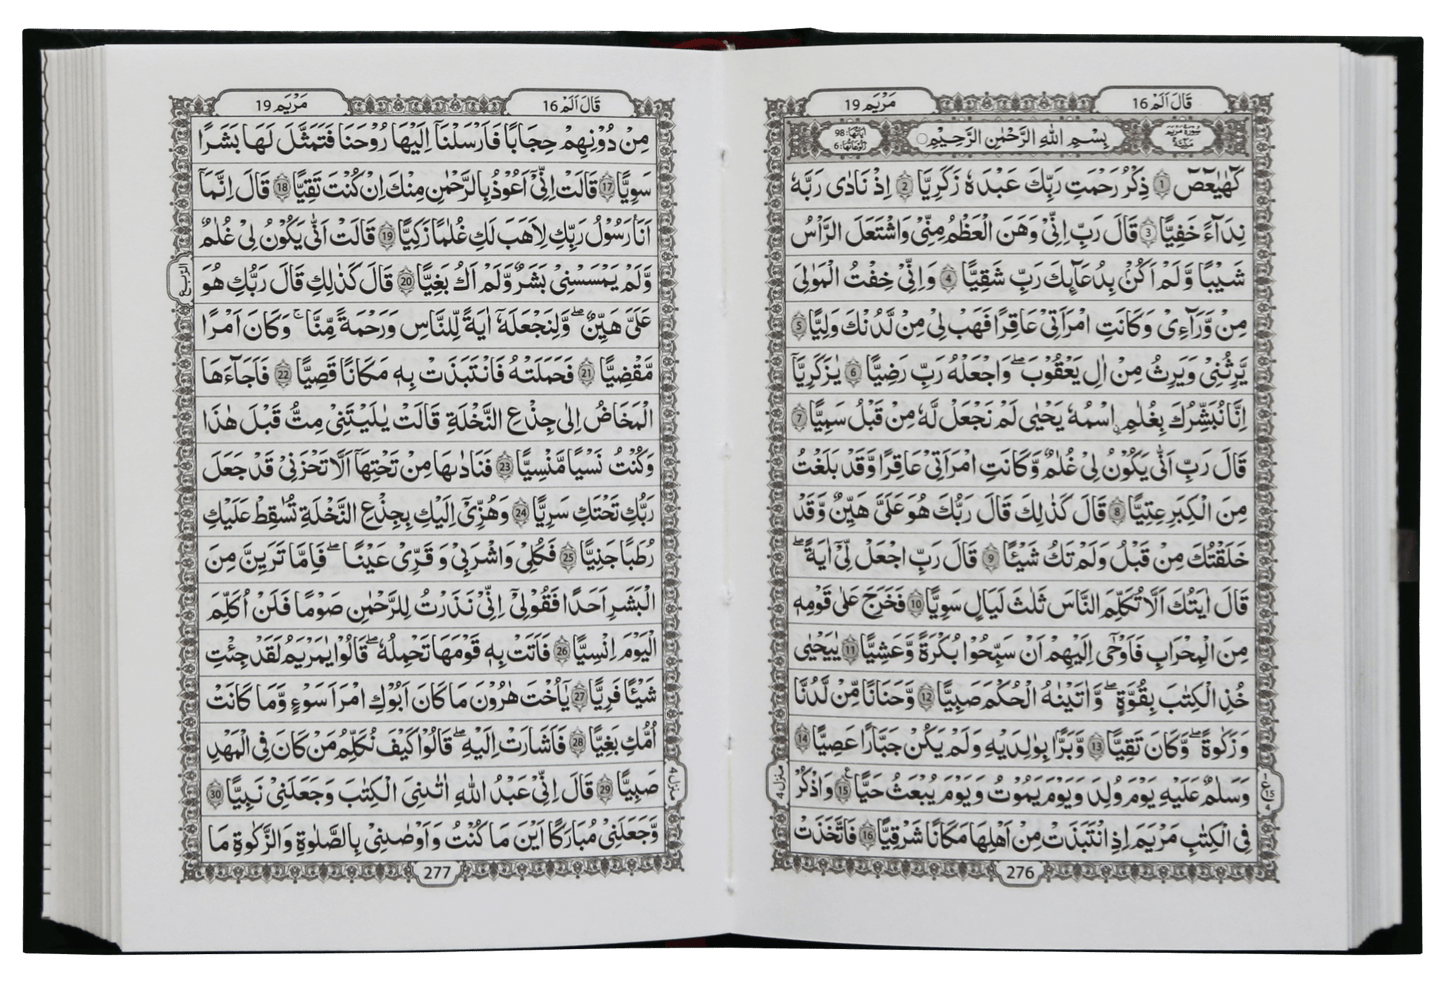 قَالَ اَلَمۡ 16
مَرۡيَم 19
سُوۡرَةُ مَرۡيَمَ مَكِّيَّةٌ
بِسۡمِ اللّٰهِ الرَّحۡمٰنِ الرَّحِيۡمِ
اٰيَاتُهَا: 98
رُكُوۡعَاتُهَا: 6
كٓهٰيٰعٓصٓ ۝1 ذِكۡرُ رَحۡمَتِ رَبِّكَ عَبۡدَهٗ زَكَرِيَّا ۝2 اِذۡ نَادٰى رَبَّهٗ
نِدَآءً خَفِيًّا ۝3 قَالَ رَبِّ اِنِّىۡ وَهَنَ الۡعَظۡمُ مِنِّىۡ وَاشۡتَعَلَ الرَّاۡسُ
شَيۡبًا وَّلَمۡ اَكُنۡۢ بِدُعَآئِكَ رَبِّ شَقِيًّا ۝4 وَاِنِّىۡ خِفۡتُ الۡمَوَالِىَ
مِنۡ وَّرَآءِىۡ وَكَانَتِ امۡرَاَتِىۡ عَاقِرًا فَهَبۡ لِىۡ مِنۡ لَّدُنۡكَ وَلِيًّا ۝5
يَّرِثُنِىۡ وَيَرِثُ مِنۡ اٰلِ يَعۡقُوۡبَ ۖ وَاجۡعَلۡهُ رَبِّ رَضِيًّا ۝6 يٰزَكَرِيَّاۤ
اِنَّا نُبَشِّرُكَ بِغُلٰمِ اۨسۡمُهٗ يَحۡيٰى لَمۡ نَجۡعَلْ لَّهٗ مِنۡ قَبۡلُ سَمِيًّا ۝7
قَالَ رَبِّ اَنّٰى يَكُوۡنُ لِىۡ غُلٰمٌ وَّكَانَتِ امۡرَاَتِىۡ عَاقِرًا وَّقَدۡ بَلَغۡتُ
مِنَ الۡكِبَرِ عِتِيًّا ۝8 قَالَ كَذٰلِكَ قَالَ رَبُّكَ هُوَ عَلَىَّ هَيِّنٌ وَّقَدۡ
خَلَقۡتُكَ مِنۡ قَبۡلُ وَلَمۡ تَكُ شَيۡئًا ۝9 قَالَ رَبِّ اجۡعَلْ لِّىۡۤ اٰيَةً ؕ
قَالَ اٰيَتُكَ اَلَّا تُكَلِّمَ النَّاسَ ثَلٰثَ لَيَالٍ سَوِيًّا ۝10 فَخَرَجَ عَلٰى قَوۡمِهٖ
مِنَ الۡمِحۡرَابِ فَاَوۡحٰٓى اِلَيۡهِمۡ اَنۡ سَبِّحُوۡا بُكۡرَةً وَّعَشِيًّا ۝11 يٰيَحۡيٰى
خُذِ الۡكِتٰبَ بِقُوَّةٍ ؕ وَاٰتَيۡنٰهُ الۡحُكۡمَ صَبِيًّا ۝12 وَّحَنَانًا مِّنۡ لَّدُنَّا
وَزَكٰوةً ؕ وَّكَانَ تَقِيًّا ۝13 وَّبَرًّۢا بِوَالِدَيۡهِ وَلَمۡ يَكُنۡ جَبَّارًا عَصِيًّا ۝14
وَسَلٰمٌ عَلَيۡهِ يَوۡمَ وُلِدَ وَيَوۡمَ يَمُوۡتُ وَيَوۡمَ يُبۡعَثُ حَيًّا ۝15 وَاذۡكُرۡ
فِى الۡكِتٰبِ مَرۡيَمَ اِذِ انْتَبَذَتۡ مِنۡ اَهۡلِهَا مَكَانًا شَرۡقِيًّا ۝16 فَاتَّخَذَتۡ
منزل 4
276
قَالَ اَلَمۡ 16
مَرۡيَم 19
مِنۡ دُوۡنِهِمۡ حِجَابًا فَاَرۡسَلۡنَاۤ اِلَيۡهَا رُوۡحَنَا فَتَمَثَّلَ لَهَا بَشَرًا
سَوِيًّا ۝17 قَالَتۡ اِنِّىۡۤ اَعُوۡذُ بِالرَّحۡمٰنِ مِنۡكَ اِنۡ كُنۡتَ تَقِيًّا ۝18 قَالَ اِنَّمَاۤ
اَنَا رَسُوۡلُ رَبِّكِ لِاَهَبَ لَكِ غُلٰمًا زَكِيًّا ۝19 قَالَتۡ اَنّٰى يَكُوۡنُ لِىۡ غُلٰمٌ
وَّلَمۡ يَمۡسَسۡنِىۡ بَشَرٌ وَّلَمۡ اَكُ بَغِيًّا ۝20 قَالَ كَذٰلِكِ قَالَ رَبُّكِ هُوَ
عَلَىَّ هَيِّنٌ ۚ وَلِنَجۡعَلَهٗۤ اٰيَةً لِّلنَّاسِ وَرَحۡمَةً مِّنَّا ۚ وَكَانَ اَمۡرًا
مَّقۡضِيًّا ۝21 فَحَمَلَتۡهُ فَانْتَبَذَتۡ بِهٖ مَكَانًا قَصِيًّا ۝22 فَاَجَآءَهَا
الۡمَخَاضُ اِلٰى جِذۡعِ النَّخۡلَةِ قَالَتۡ يٰلَيۡتَنِىۡ مِتُّ قَبۡلَ هٰذَا
وَكُنۡتُ نَسۡيًا مَّنۡسِيًّا ۝23 فَنَادٰٮهَا مِنۡ تَحۡتِهَاۤ اَلَّا تَحۡزَنِىۡ قَدۡ جَعَلَ
رَبُّكِ تَحۡتَكِ سَرِيًّا ۝24 وَهُزِّىۡۤ اِلَيۡكِ بِجِذۡعِ النَّخۡلَةِ تُسٰقِطۡ عَلَيۡكِ
رُطَبًا جَنِيًّا ۝25 فَكُلِىۡ وَاشۡرَبِىۡ وَقَرِّىۡ عَيۡنًا ۚ فَاِمَّا تَرَيِنَّ مِنَ
الۡبَشَرِ اَحَدًا فَقُوۡلِىۡۤ اِنِّىۡ نَذَرۡتُ لِلرَّحۡمٰنِ صَوۡمًا فَلَنۡ اُكَلِّمَ
الۡيَوۡمَ اِنۡسِيًّا ۝26 فَاَتَتۡ بِهٖ قَوۡمَهَا تَحۡمِلُهٗ ؕ قَالُوۡا يٰمَرۡيَمُ لَقَدۡ جِئۡتِ
شَيۡئًا فَرِيًّا ۝27 يٰۤاُخۡتَ هٰرُوۡنَ مَا كَانَ اَبُوۡكِ امۡرَاَ سَوۡءٍ وَّمَا كَانَتۡ
اُمُّكِ بَغِيًّا ۝28 فَاَشَارَتۡ اِلَيۡهِ ؕ قَالُوۡا كَيۡفَ نُكَلِّمُ مَنۡ كَانَ فِى الۡمَهۡدِ
صَبِيًّا ۝29 قَالَ اِنِّىۡ عَبۡدُ اللّٰهِ اٰتٰٮنِىَ الۡكِتٰبَ وَجَعَلَنِىۡ نَبِيًّا ۝30
وَّجَعَلَنِىۡ مُبَارَكًا اَيۡنَ مَا كُنۡتُ وَاَوۡصٰنِىۡ بِالصَّلٰوةِ وَالزَّكٰوةِ مَا
الربع
منزل 4
277